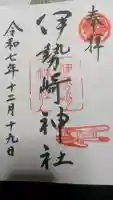 奉拝
伊勢崎神社
令和七年十二月十九日